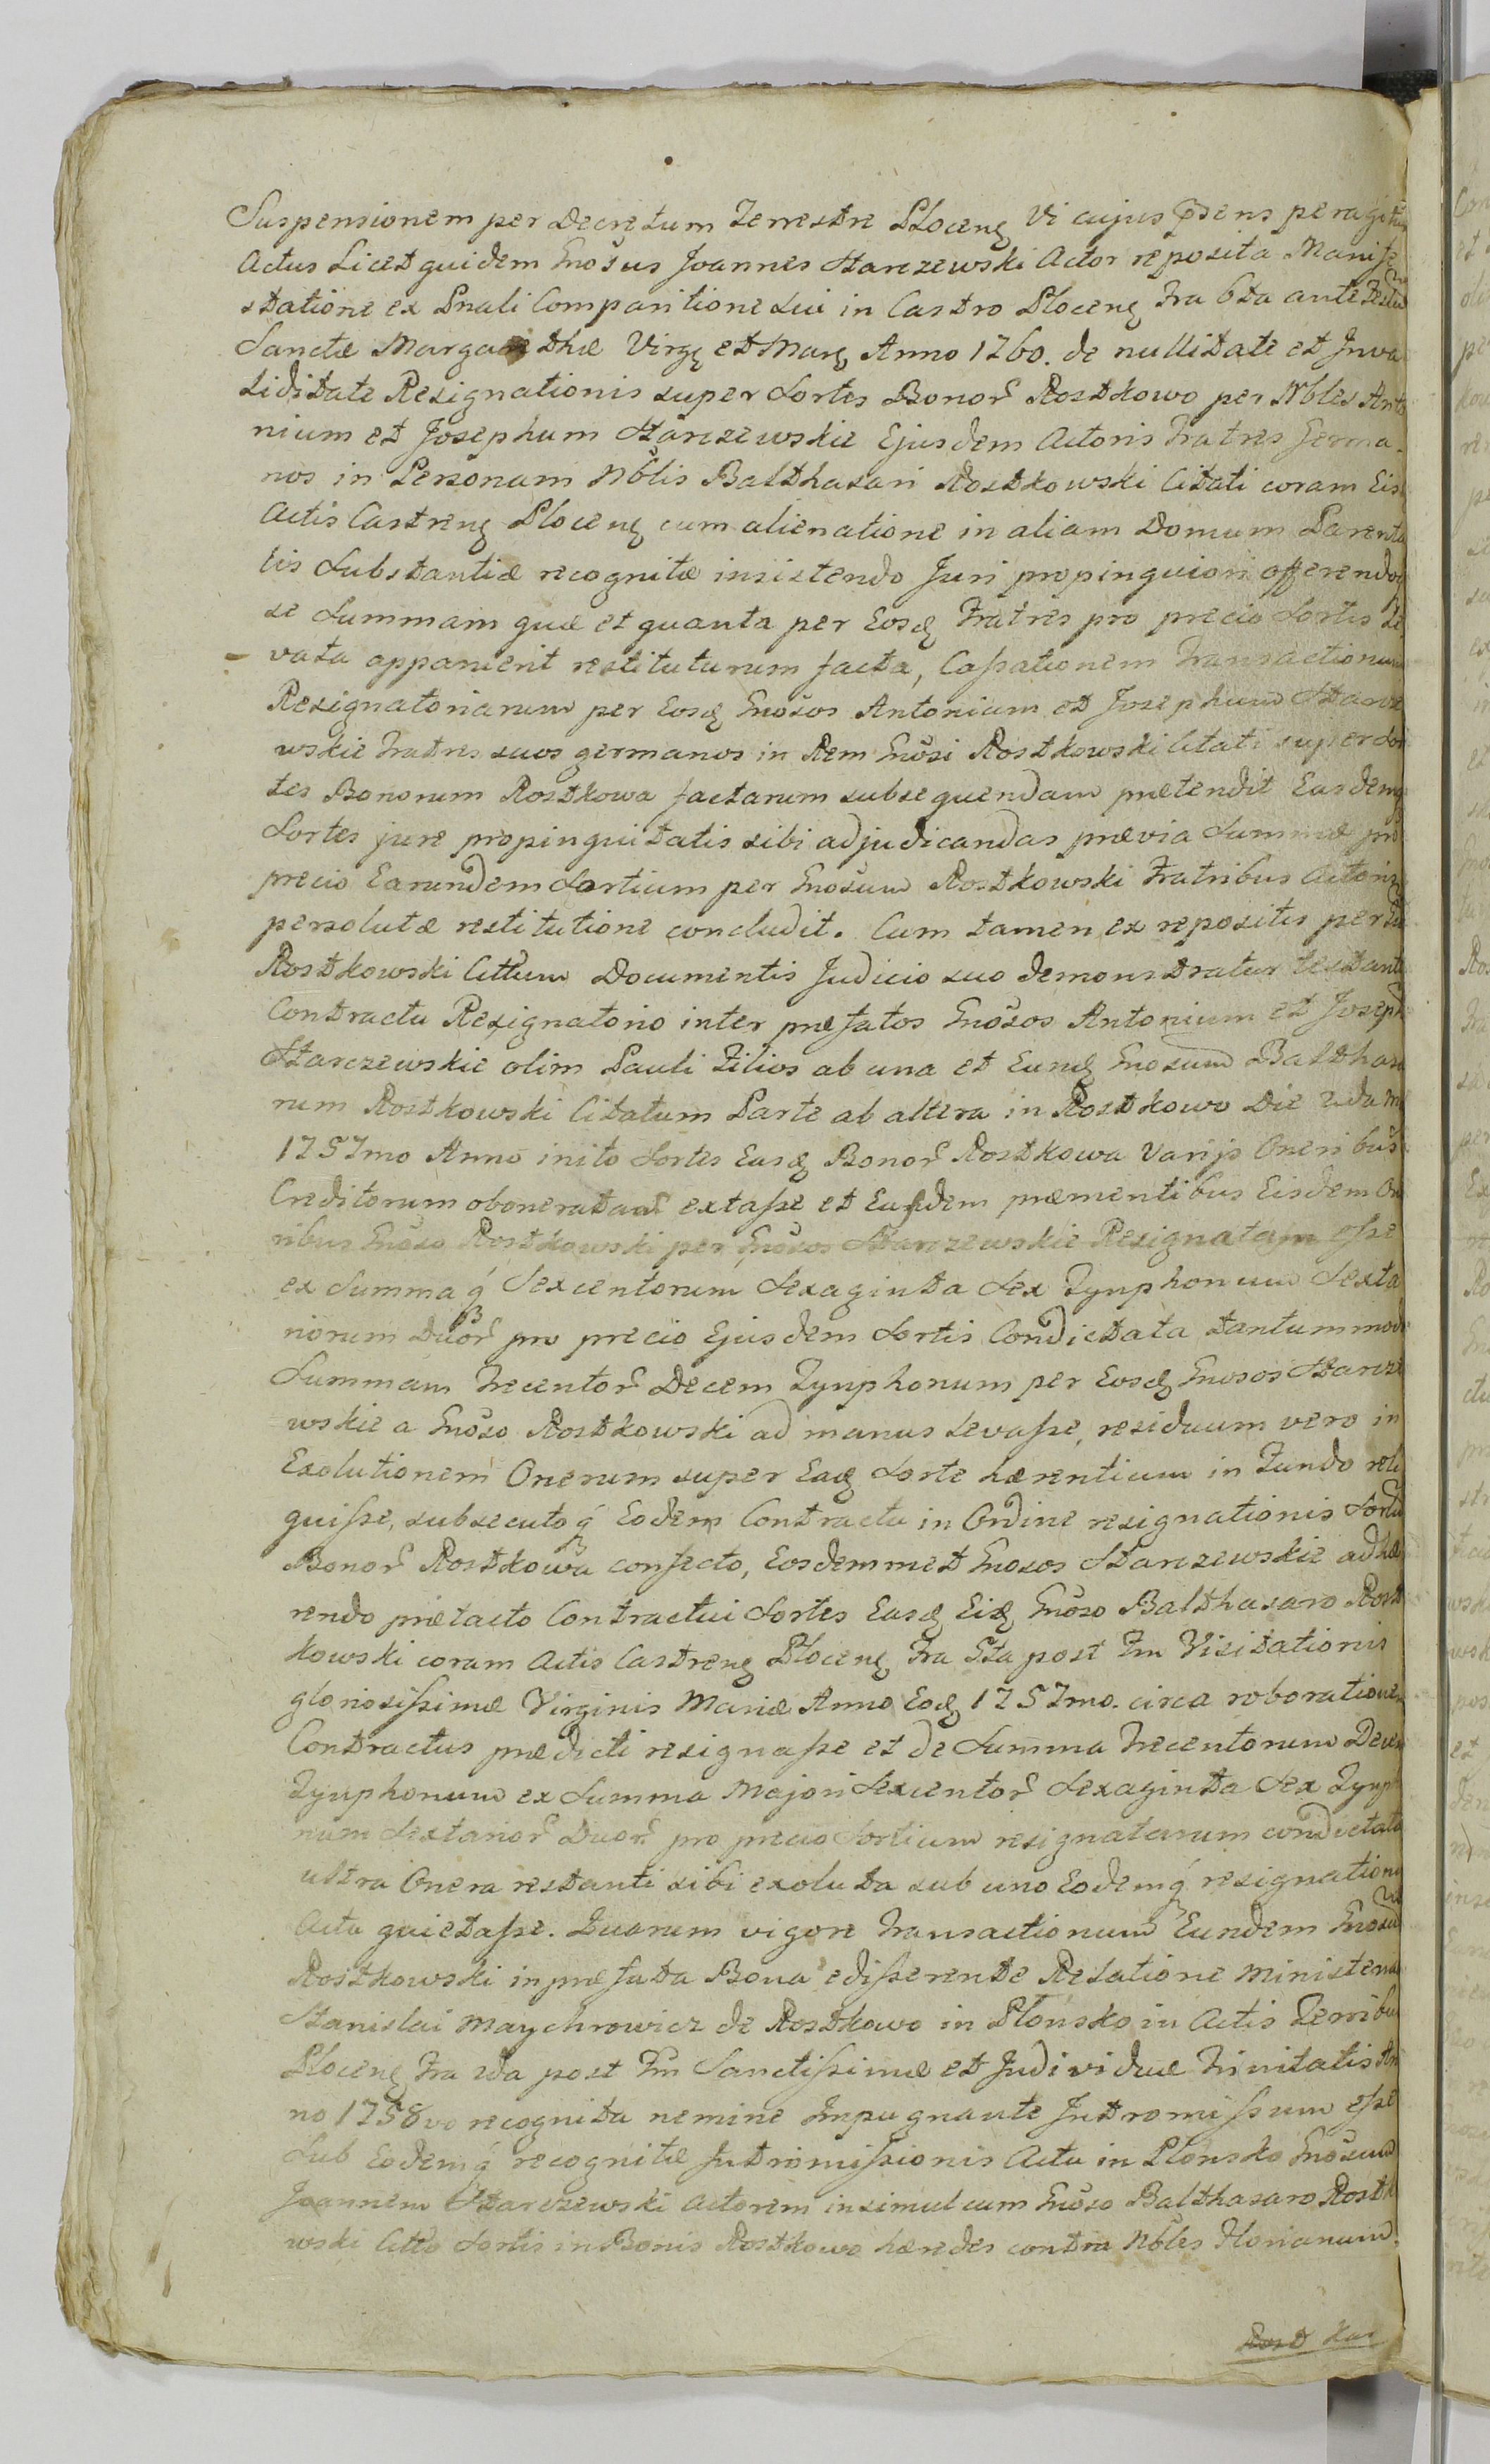 Suspensionem per Decretum Terrestre Plocens Vi cujus psens peragitur
Actus Licet quidem Gnosus Joannes Starczewski Actor reposita Manife
statione ex Pnali Comparitione sui in Castro Plocens Fra 6ta ante Festum
Sanctæ Margarethæ Virgs et Mars Anno 1760. de nullitate et Inva
liditate Resignationis super Sortes Bonor Rostkowo per Nbles Anto
nium et Josephum Starczewskie Ejusdem Actoris Fratres Germa-
nos in Personam Nblis Balthasari Rostkowski Citati coram Eis
Actis Castrens Plocens cum alienatione in aliam Domum Parenta
lis Substantiæ recognitæ insistendo Juri propinquiori offerendoq
se Summam quæ et quanta per Eosd Fratres pro precio Sortis le
vata apparuerit restituturum facta, Cassationem Transactionum
Resignatoriarum per Eosd Gnosos Antonium et Josephum Starcze
wskie Fratres suos germanos in Rem Gnosi Rostkowski Citati super Sor
tes Bonorum Rostkowa factarum subsequendam prætendit Easdemq
Sortes jure propinquitatis sibi adjudicandas prævia Summæ pro
precio Earundem Sortium per Gnosum Rostkowski Fratribus Actoris
persolutæ restitutione concludit. Cum tamen ex repositis per
Rostkowski Cittum Documentis Judicio suo demonstratur testante
Contractu Resignatorio inter præfatos Gnosos Antonium et Joseph
Starczewskie olim Pauli Filios ab una et Eund Gnosum Balthasa
rum Rostkowski Citatum Parte ab altera in Rostkowo Die 2da
1757mo Anno inito Sortes Easd Bonor Rostkowa Varijs Oneribus
Creditorum oboneratam extasse et Easdem præmentibus Eisdem One
ribus Gnoso Rostkowski per Gnosos Starczewskie Resignatam esse
ex Summa q Sexcentorum Sexaginta Sex Tynphonum Sexta
niorum Duor pro precio Ejusdem Sortis Condictata tantummodo
Summam Trecentor Decem Tynphonum per Eosd Gnosos Starcze
wskie a Gnoso Rostkowski ad manus levasse, residuum vero in
Exolutionem Onerum super Ead Sorte hærentium in Fundo reli
quisse, subsecuto q Eodem Contractu in Ordine resignationis Sortis
Bonor Rostkowa confecto, Eosdemmet Gnosos Starczewskie adhæ
rendo prætacto Contractui Sortes Easd Eid Gnoso Balthasaro Rost
kowski coram Actis Castrens Plocens Fra 5ta post Fm Visitationis
gloriosissimæ Virginis Mariæ Anno Eod 1757mo. circa roborationem
Contractus prædicti resignasse et de Summa Trecentorum Decem
Tynphonum ex Summa Majori Sexcentor Sexaginta Sex Tynpho
num Sextanior Duor pro precio Sortium resignatarum condictata
ultra Onera restanti sibi exoluta sub uno Eodemq resignationis
Actu quietasse. Quarum vigore Transactionum Eundem Gnosum
Rostkowski in præfata Bona edisserente Relatione Ministeria
Stanislai Maychrowicz de Rostkowo in Płonsko in Actis Terribus
Plocens Fra 2da post Fm Sanctissimæ et Individuæ Trinitatis An
no 1758vo recognita nemine Impugnante Intromissum esse
Sub Eodemq recognitæ Intromissionis Actu in Płonsko Gnosum
Joannem Starczewski Actorem insimul cum Gnoso Balthasaro Rostk
wski Citto Sortis in Bonis Rostkowo hæredes contra Nbles Florianum